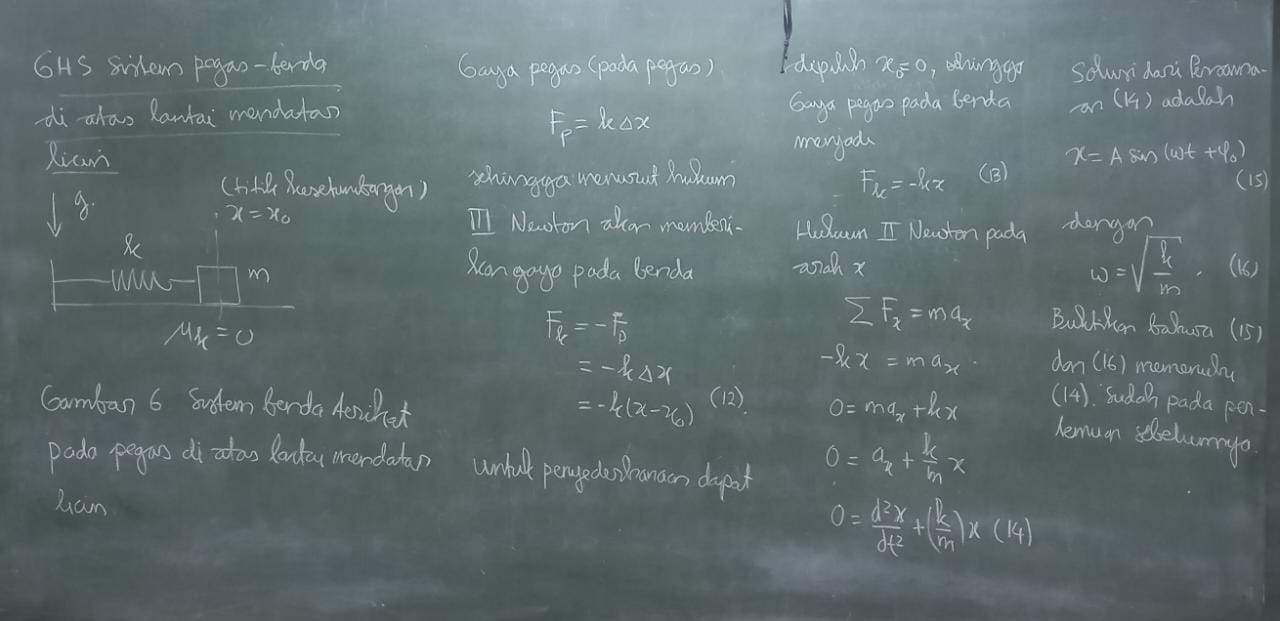 GHS sistem pegas-benda
di atas lantai mendatar
licin
g.
(titik kesetimbangan)
x = x₀
k
m
μₖ = 0
Gambar 6 Sistem benda terikat
pada pegas di atas lantai mendatar
licin
Gaya pegas (pada pegas)
Fₚ = kΔx
sehingga menurut hukum
III Newton akan memberi-
kan gaya pada benda
Fₖ = -Fₚ
= -kΔx
= -k(x-x₀) (12).
untuk penyederhanaan dapat
dipilih x₀ = 0, sehingga
Gaya pegas pada benda
menjadi
Fₖ = -kx (13)
Hukum II Newton pada
arah x
∑Fₓ = maₓ
-kx = maₓ.
0 = maₓ + kx
0 = aₓ + k/m x
0 = d²x/dt² + (k/m)x (14)
Solusi dari Persama-
an (14) adalah
x = A sin (ωt + φ₀)
(15)
dengan
ω = √(k/m). (16)
Buktikan bahwa (15)
dan (16) memenuhi
(14). Sudah pada per-
temuan sebelumnya.